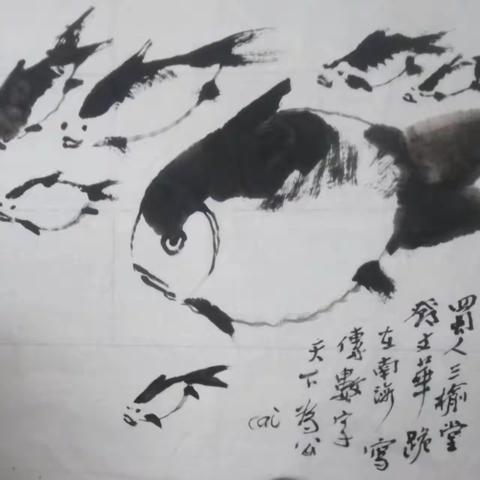 蜀人三榆堂
文華跪
在南海寫
傳數字
天下為公
cai